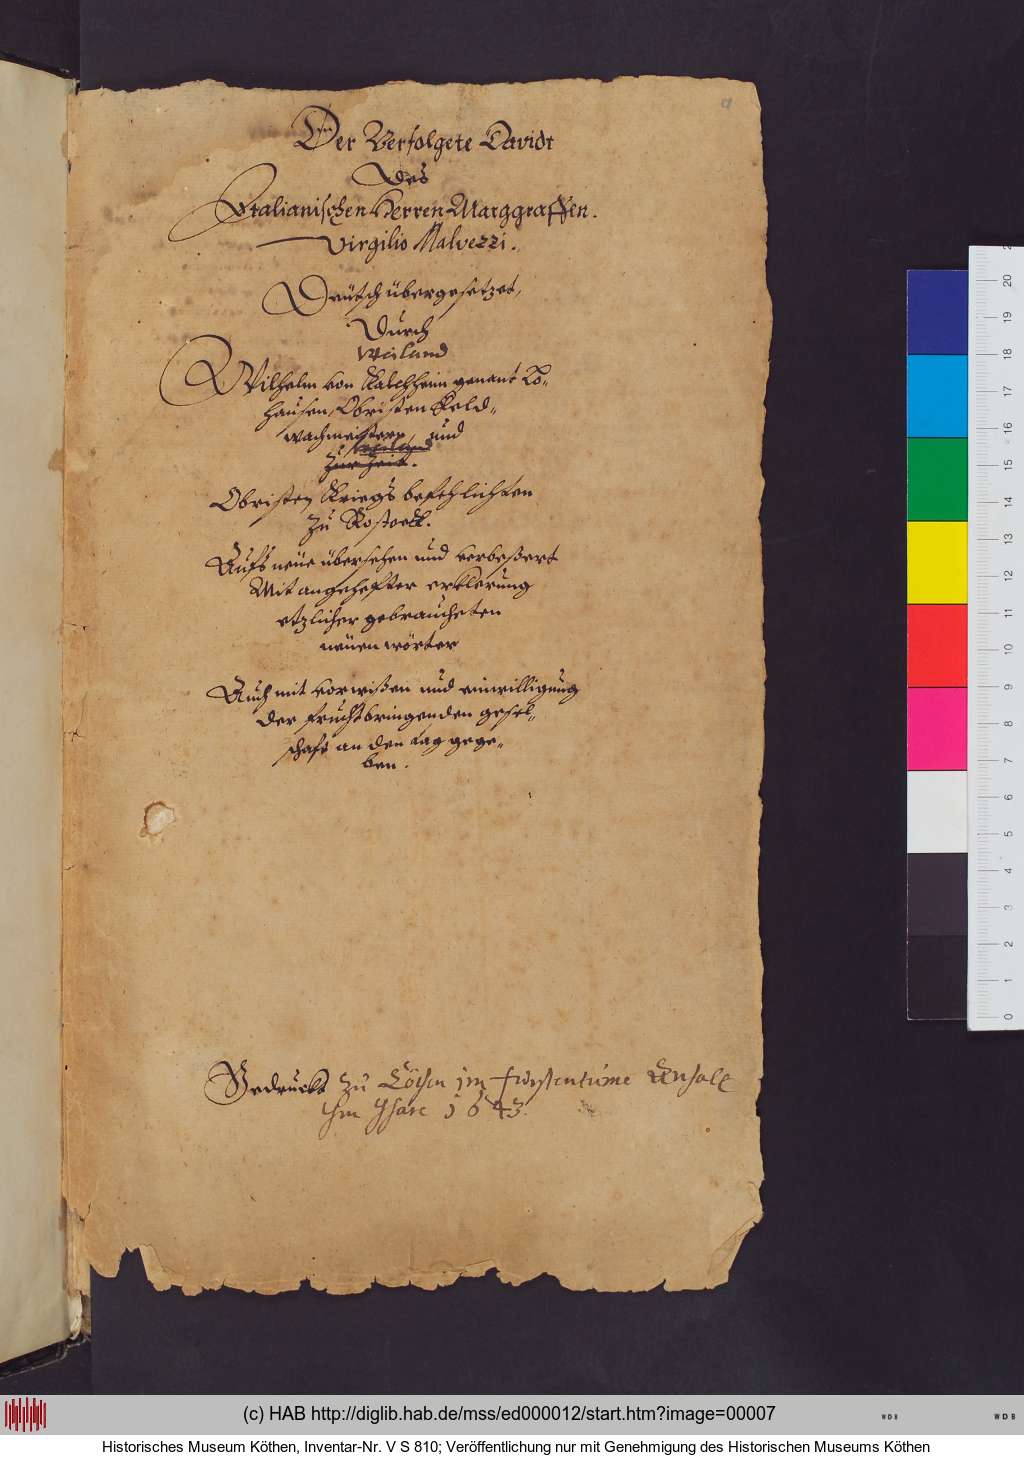 Der Verfolgete Davidt
Des
Italianischen Herren Marggraffen.
Virgilio Malvezzi.
Deütsch übergesetzet,
Durch
Weiland
Wilhelm von Kalchheim genant Lo-
hausen, Obristen Feld-
wachmeistern, und
zur Zeit.
Obristen Kriegs befehlichten
zu Rostock.
Aufs neüe übersehen und verbeßert
Mit angehefter erklerung
etzlicher gebraucheten
neüen wörter
Auch mit vorwißen und einwilligung
der fruchtbringenden gesel-
schaft an den tag gege-
ben.
Gedruckt zu Cöthen im Fürstentume Anhalt
Im Jhare 1643.
20
19
18
17
16
15
14
13
12
11
10
9
8
7
6
5
4
3
2
1
0
(c) HAB http://diglib.hab.de/mss/ed000012/start.htm?image=00007
WDB
WDB
Historisches Museum Köthen, Inventar-Nr. V S 810; Veröffentlichung nur mit Genehmigung des Historischen Museums Köthen